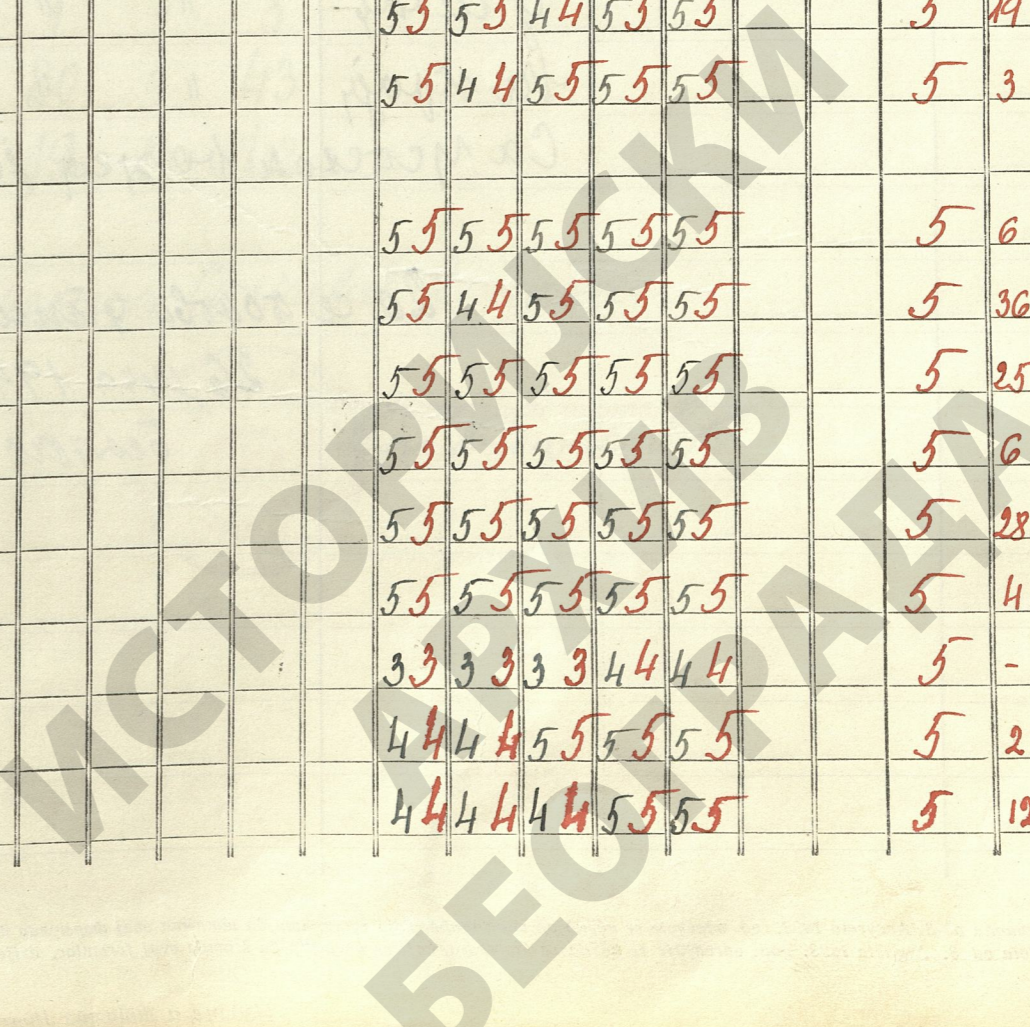 55 55 44 55 55 5 14
55 44 55 55 55 5 3
55 55 55 55 55 5 6
55 44 55 55 55 5 36
55 55 55 55 55 5 25
55 55 55 55 55 5 6
55 55 55 55 55 5 28
55 55 55 55 55 5 4
33 33 33 44 44 5 -
44 44 55 55 55 5 2
44 44 44 55 55 5 12
ИСТОРИЈСКИ
АРХИВ
БЕОГРАДА